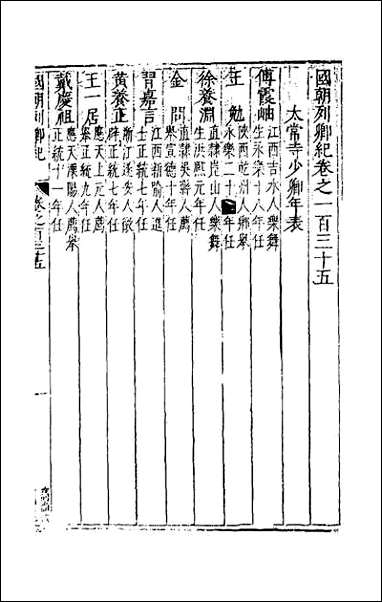 國朝列卿紀卷之一百三十五
太常寺少卿年表
傅霞岫 江西吉水人樂舞
生永樂十八年任
王勉 陝西乾州人鄉舉
永樂二十 年任
徐養淵 直隸崑山人樂舞
生洪熙元年任
金問 直隸吳縣人薦
舉宣德十年任
習嘉言 江西新喻人進
士正統七年任
黃養正 浙江瑞安人徵
辟正統七年任
王一居 應天上元人薦
舉正統九年任
戴慶祖 應天溧陽人薦舉
正統十一年任
國朝列卿紀 卷之一百三十五
一